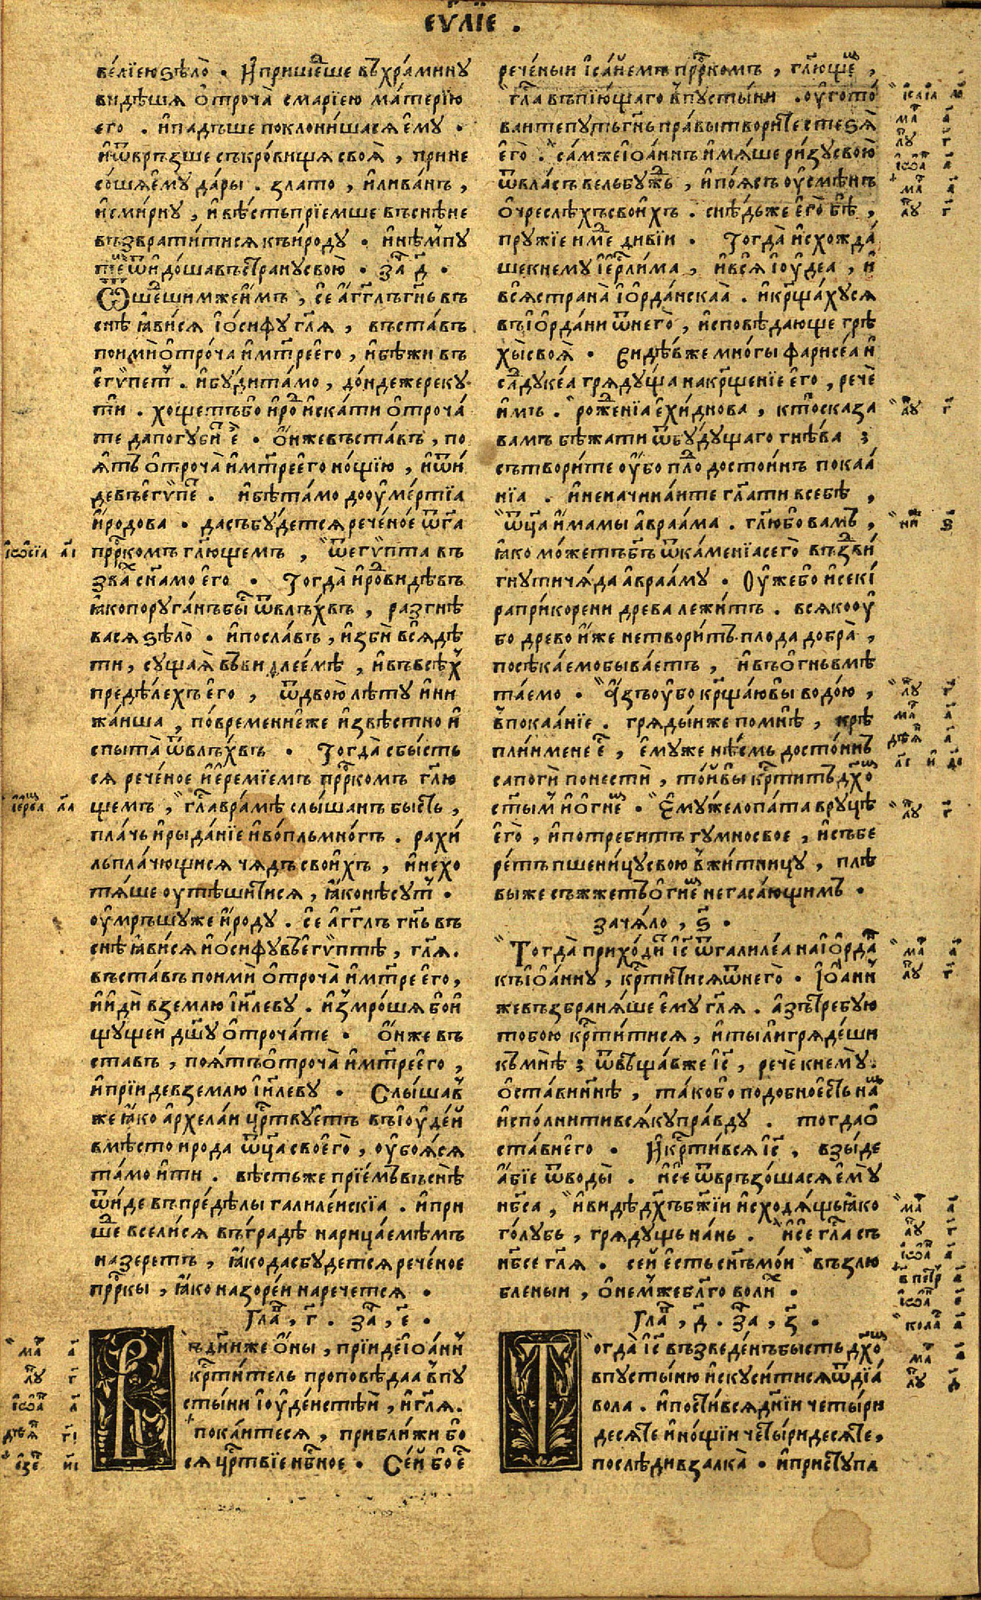 єѵⷢ҇лїе .
велїею ѕѣло̀ . И҆ прише́дше въ хра́мину
ви́дѣшѧ ѻ҆троча̀ с марїею ма́терїю
его . и҆ па́дъше поклони́шасѧ є҆му̀ .
и҆ ѿвръ́зше съкро́вищѧ своѧ̀ , прине
со́шѧ є҆му̀ да́ры . злато , и҆ лива́нъ ,
и҆ смѵ́рну , и҆ вѣ́сть прїе́мше въ снѣ не
възврати́тисѧ къ и҆́роду . и҆ и҆нѣ́мъ пу
те́мъ ѿидо́ша въ страну̀ своѧ̀ . за҃ д҃ .
Ѿше́дшим же и҆́мъ , се а҆́гг҃лъ гн҃ь въ
снѣ ꙗ҆ви́сѧ і҆ѡ́сифу гл҃ѧ , въста́въ
поимѝ ѻ҆троча̀ и҆ мт҃рь є҆го̀ , и҆ бѣжи въ
є҆гѵ́петъ . и҆ бу́ди та́мо , до́ндеже реку
ти . хо́щетъ бо и҆́родъ и҆ска́ти ѻ҆троча́
те да погуби́тъ є҆̀ . ѻ҆́н же въста́въ , по
ѧ́тъ ѻ҆троча̀ и҆ мт҃рь є҆го̀ но́щїю , и҆ ѿи́
де въ є҆гѵ́петъ . и҆ бѣ̀ та́мо до ᲂу҆ме́ртїа
и҆́родова . да събу́детсѧ рече́ное ѿ г҃а
прⷪ҇ркомъ гл҃ющемъ , ѿ є҆гѵ́пта въ
зва́хъ сн҃а мо є҆го̀ . Тогда̀ и҆́родъ ви́дѣвъ
ꙗ҆́ко пору́ганъ бы́сть ѿ влъ́хвъ , разгнѣ
васѧ ѕѣло̀ . и҆ посла́въ , и҆збѝ всѧ̀ дѣ́
ти , су́щаѧ въ виѳлее́мѣ , и҆ въ всѣ́хъ
предѣ́лехъ є҆го̀ , ѿ двою̀ лѣ́ту и҆ ни
жа́йша , по вре́мени є҆́же и҆звѣ́стно и҆
спыта̀ ѿ влъ́хвъ . Тогда̀ сбы́сть
сѧ рече́ное і҆еремі́емъ прⷪ҇ркомъ гл҃ю
щемъ , гла́съ въ ра́мѣ слы́шанъ бы́сть ,
пла́чь и҆ рыда́нїе и҆ во́пль мно́гъ . рахи́
ль пла́чющисѧ чѧ́дъ свои́хъ , и҆ не хо
тѧ́ше ᲂу҆тѣ́шитисѧ , ꙗ҆́ко не су́ть .
ᲂу҆мръ́шу же и҆́роду . се а҆́гг҃лъ гн҃ь въ
снѣ ꙗ҆ви́сѧ і҆ѡ́сифу въ є҆гѵ́птѣ , гл҃ѧ .
въста́въ поимѝ ѻ҆троча̀ и҆ мт҃рь є҆го̀ ,
и҆ и҆дѝ в зе́млю і҆и҃леву . и҆змро́шѧ бо и҆́
щущеи дш҃у ѻ҆троча́те . ѻ҆́н же въ
ста́въ , поѧ́тъ ѻ҆троча̀ и҆ мт҃рь є҆го̀ ,
и҆ прїи́де в зе́млю і҆и҃леву . Слы́шав
же ꙗ҆́ко архела́и црⷭ҇твуетъ въ і҆ѹде́и
вмѣ́сто и҆́рода ѻ҆ц҃а своего̀ , ᲂу҆боѧ́сѧ
та́мо и҆ти . вѣ́сть же прїе́мъ въ снѣ
ѿи́де въ предѣ́лы галиле́искїа . и҆ при
ше́дъ всели́сѧ въ гра́дѣ нарица́емѣмъ
назаре́тъ , ꙗ҆́ко да сбу́детсѧ рече́ное
прⷪ҇ркы , ꙗ҆́ко назоре́и нарече́тсѧ .
Глаⷡ҇ , г҃ . за҃ , є҃ .
Въ дни́ же ѻ҆́ны , прїи́де і҆ѡа́ннъ
крⷭ҇ти́тель проповѣ́даа в пу
сты́ни і҆ѹде́истѣй , и҆ гл҃ѧ .
пока́итесѧ , прибли́жи бо
сѧ црⷭ҇твїе нбⷭ҇ное . Се́й бо є҆́сть
рече́ныи і҆са́їемъ прⷪ҇ркомъ , гл҃ющемъ ,
гла́съ въпїю́щаго в пусты́ни . ᲂу҆гото́
ваите пу́ть гн҃ь пра́вы твори́те стеѕѧ̀
є҆го̀ . са́м же і҆ѡа́ннъ и҆мѧ́ше ри́зу свою̀
ѿ вла́съ вельбу́жь , и҆ по́ѧсъ ᲂу҆сме́нъ
ѻ҆ чре́слѣхъ свои́хъ . снѣ́дь же є҆го̀ бѣ̀ ,
пру́жїе и҆ ме́дъ ди́вїи . Тогда̀ и҆схожда́
ше к нему̀ і҆ерⷭ҇ли́ма , и҆ всѧ̀ і҆ѹде́а , и҆
всѧ̀ страна̀ і҆ѻрда́нскаа . и҆ крⷭ҇ща́хусѧ
въ і҆ѻрда́ни ѿ него̀ , и҆сповѣ́дающе грѣ
хы̀ своѧ̀ . Ви́дѣв же мно́гы фарисе́а и҆
садуке́а грѧду́ща на крⷭ҇ще́нїе є҆го̀ , речѐ
и҆́мъ . роже́нїа є҆хи́днова , кто̀ сказа̀
вамъ бѣжа́ти ѿ бу́дущаго гнѣ́ва ;
сътвори́те ᲂу҆́бо пло́дъ досто́инъ пока́а
нїа . и҆ не начина́ите гл҃ати в себѣ̀ ,
ѻ҆ц҃а и҆́мамы а҆враа́ма . гл҃ю бо ва́мъ ,
ꙗ҆́ко мо́жетъ бг҃ъ ѿ ка́менїа сего̀ въздви́
гнути чѧ́да а҆враа́му . Оу҆же́ бо и҆ секи́
ра при ко́рени дре́ва лежи́тъ . всѧ́ко ᲂу҆́
бо дре́во и҆́же не твори́тъ плода̀ добра̀ ,
посѣка́емо быва́етъ , и҆ въ ѻ҆́гнь вмѣ
та́емо . А҆́зъ ᲂу҆́бо крⷭ҇ща́ю вы̀ водо́ю ,
в покаа́нїе . грѧды́и же по мнѣ̀ , крѣ́
плїи менѐ є҆́сть , є҆му́же нѣ́смь досто́инъ
сапогѝ понестѝ , то́й вы̀ крⷭ҇ти́тъ дх҃омъ
ст҃ы́мъ и҆ ѻ҆гне́мъ . Є҆му́же лопа́та в руцѣ̀
є҆го̀ , и҆ потреби́тъ гумно̀ своѐ , и҆ събе
ре́тъ пшени́цу свою̀ в жи́тницу , пле́
вы же съжже́тъ ѻ҆гне́мъ негаса́ющимъ .
зача́ло , ѕ҃ .
Тогда̀ прихо́дитъ і҆с҃ ѿ галиле́а на і҆ѻрда́нъ
къ і҆ѡа́нну , крⷭ҇ти́тисѧ ѿ него̀ . І҆ѡа́ннъ
же възбранѧ́ше є҆му̀ гл҃ѧ . а҆́зъ тре́бую
тобо́ю крⷭ҇ти́тисѧ , и҆ ты́ ли грѧде́ши
къ мнѣ̀ ; ѿвѣща́в же і҆с҃ , речѐ к нему̀ .
ѻ҆ста́ви ни́нѣ , та́ко бо подо́бно є҆́сть на́мъ
и҆спо́лнити всѧ́ку пра́вду . тогда̀ ѻ҆
ста́ви є҆го̀ . И҆ крⷭ҇ти́всѧ і҆с҃ , взы́де
а҆́бїе ѿ воды̀ . и҆ сѐ ѿвръзо́шасѧ є҆му̀
нб҃са , и҆ ви́дѣ дх҃ъ бж҃їи и҆сходѧ́щь ꙗ҆́ко
го́лубь , грѧду́щь на́нь . и҆ сѐ гла́съ съ
нб҃се гл҃ѧ . се́й є҆́сть сн҃ъ мо́и възлю́
бленыи , ѻ҆ не́мже бл҃говоли́хъ .
Глаⷡ҇ , д҃ . за҃ , з҃ .
Тогда̀ і҆с҃ възведе́нъ бы́сть дх҃омъ
в пусты́ню и҆скуси́тисѧ ѿ дїа́
вола . и҆ пости́всѧ дні́и четы́ри
десѧ́те и҆ но́щїи четы́ридесѧте ,
послѣдѝ взалка̀ . и҆ присту́пль